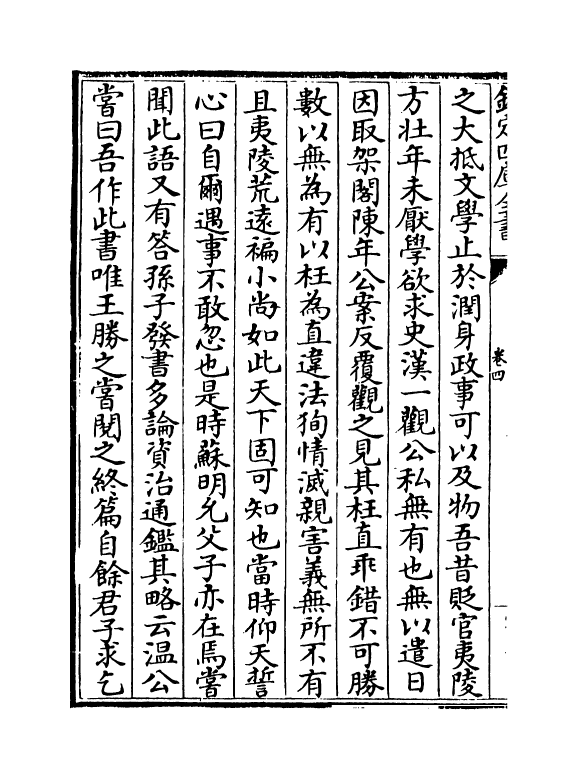 欽定四庫全書
卷四
之大抵文學止於潤身政事可以及物吾昔貶官夷陵
方壯年未厭學欲求史漢一觀公私無有也無以遣日
因取架閣陳年公案反覆觀之見其枉直乖錯不可勝
數以無為有以枉為直違法狥情滅親害義無所不有
且夷陵荒遠褊小尚如此天下固可知也當時仰天誓
心曰自爾遇事不敢忽也是時蘇明允父子亦在焉嘗
聞此語又有答孫子發書多論資治通鑑其略云温公
嘗曰吾作此書唯王勝之嘗閱之終篇自餘君子求乞